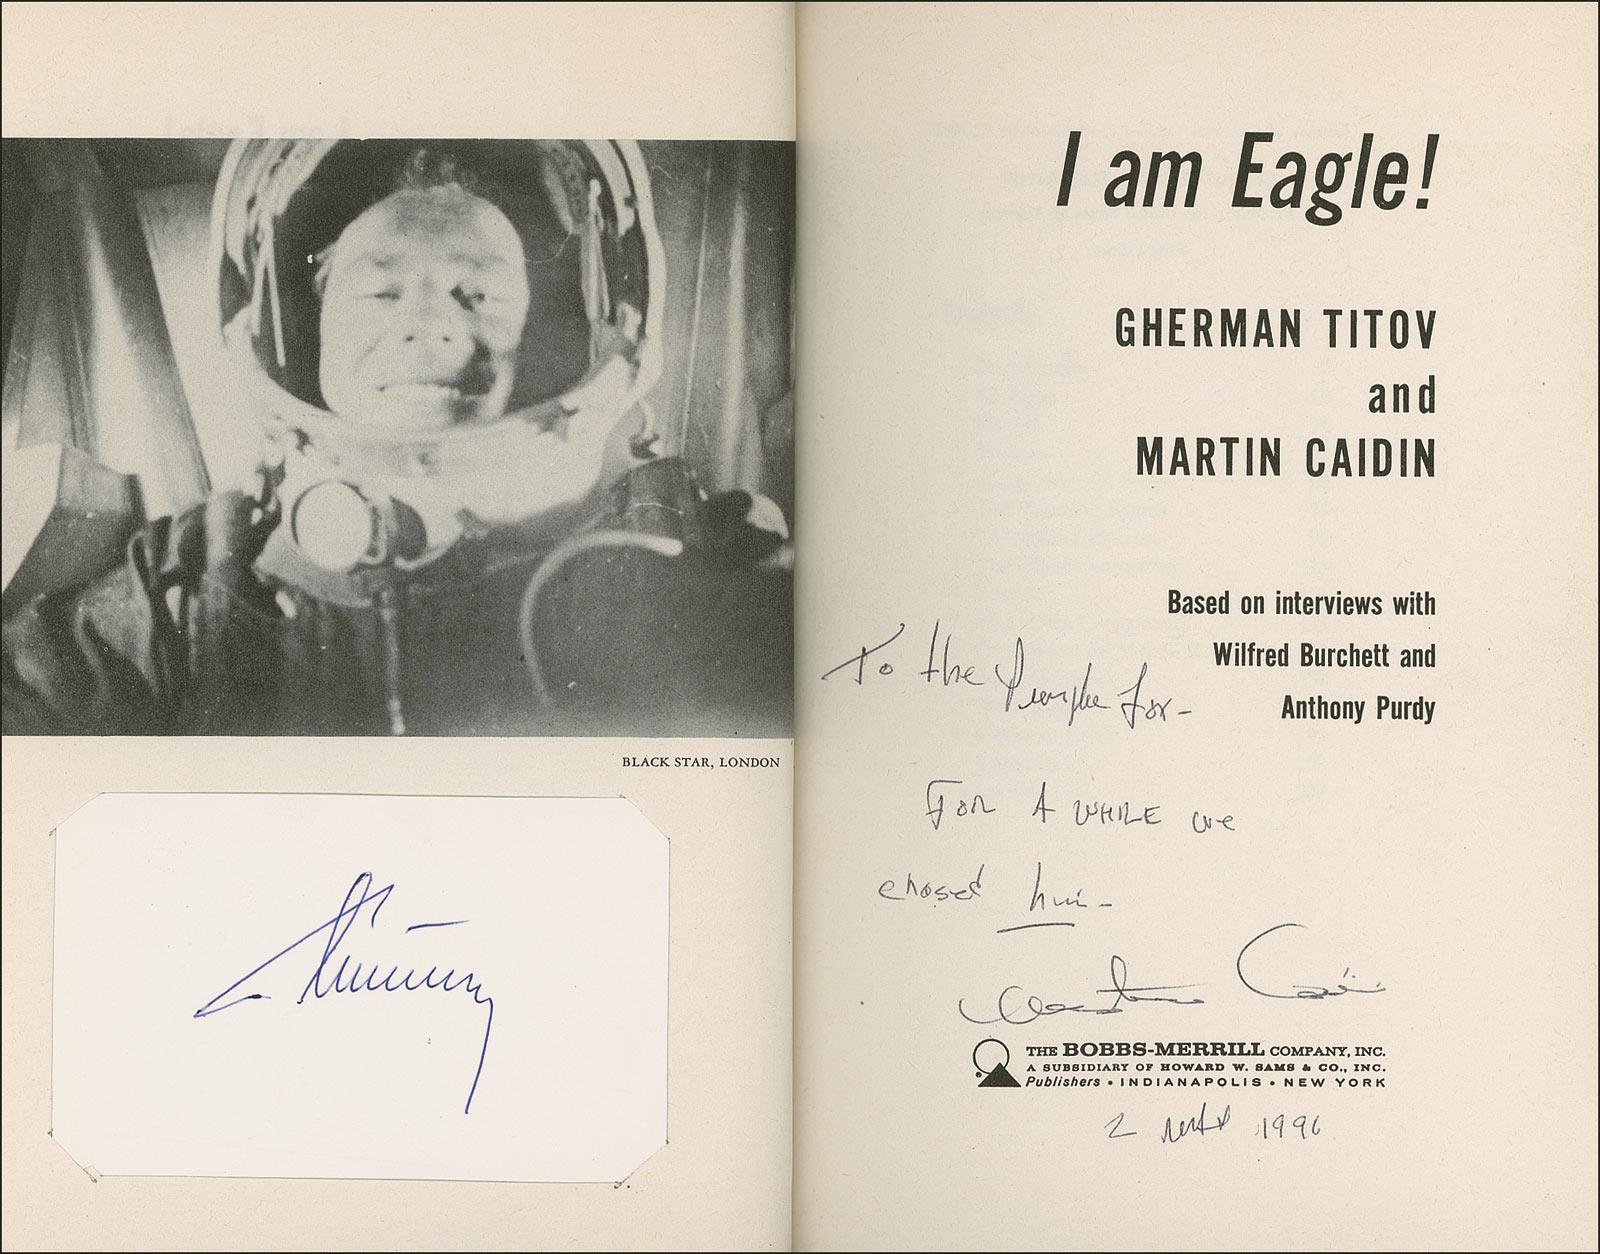 BLACK STAR, LONDON
I am Eagle!
GHERMAN TITOV
and
MARTIN CAIDIN
Based on interviews with
Wilfred Burchett and
Anthony Purdy
To the Purple Fox-
FOR A WHILE we
chased him-
Martin Caidin
THE BOBBS-MERRILL COMPANY, INC.
A SUBSIDIARY OF HOWARD W. SAMS & CO., INC.
Publishers • INDIANAPOLIS • NEW YORK
2 1996